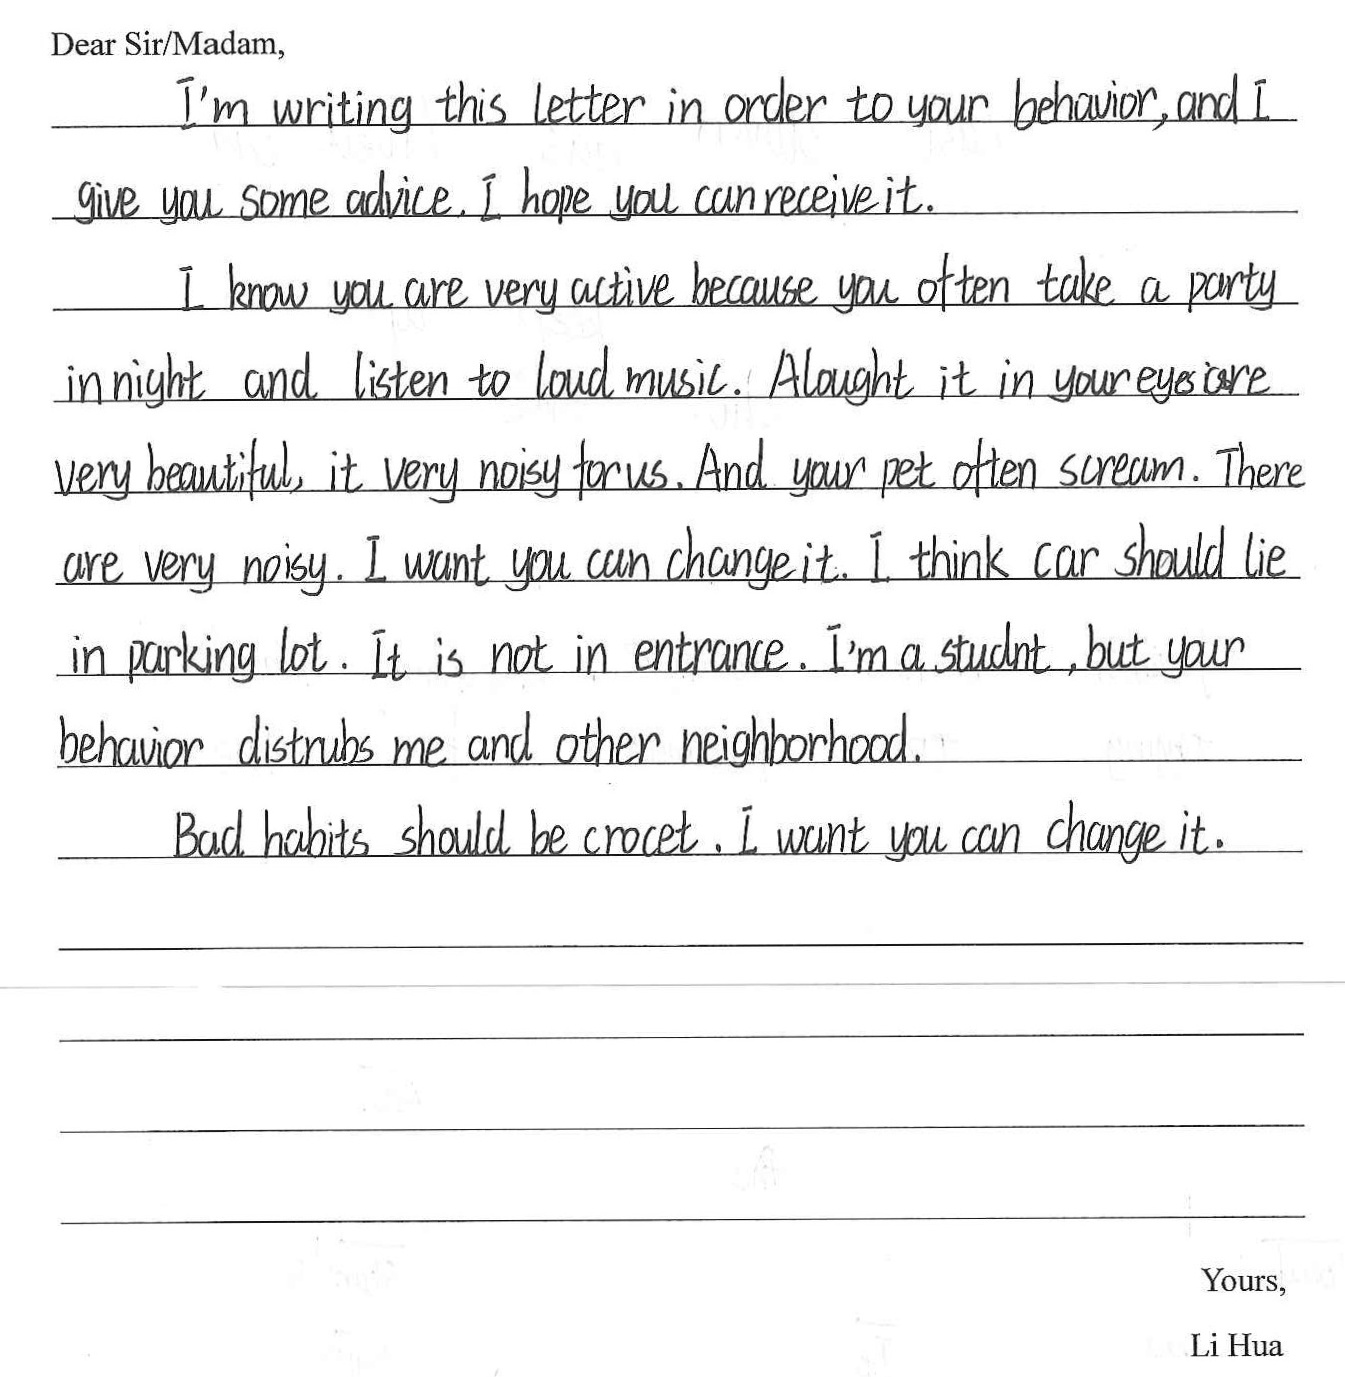 Dear Sir/Madam,
I'm writing this letter in order to your behavior, and I
give you some advice. I hope you can receive it.
I know you are very active because you often take a party
in night and listen to loud music. Alought it in your eyes are
very beautiful, it very noisy for us. And your pet often scream. There
are very noisy. I want you can change it. I think car should lie
in parking lot. It is not in entrance. I'm a studnt, but your
behavior distrubs me and other neighborhood.
Bad habits should be crocet. I want you can change it.
Yours,
Li Hua